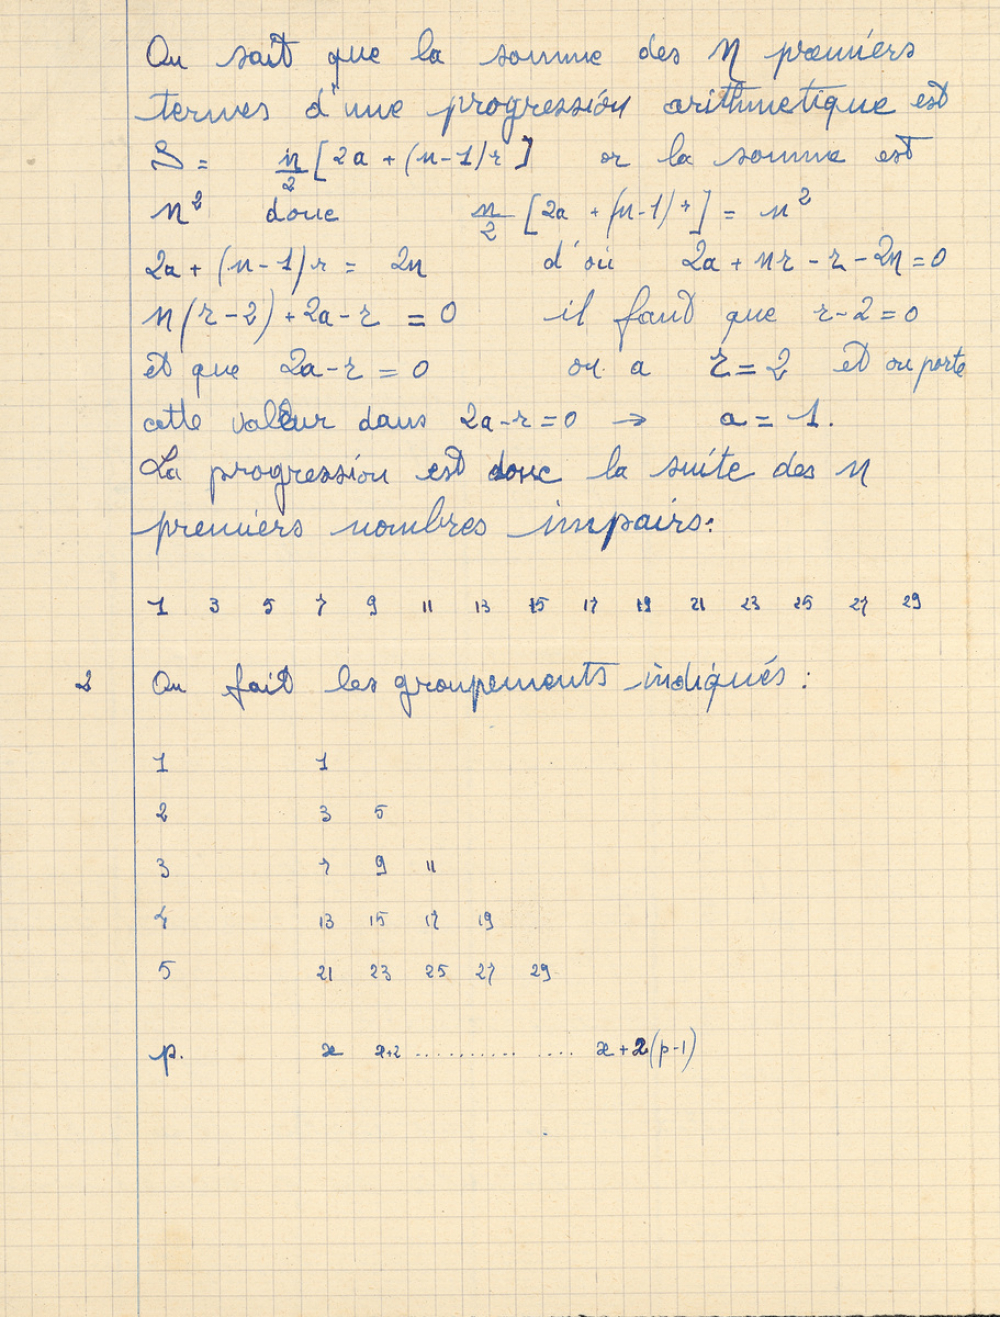 On sait que la somme des n premiers
termes d'une progression arithmetique est
S = n/2 [2a + (n-1)r] or la somme est
n² donc n/2 [2a + (n-1)r] = n²
2a + (n-1)r = 2n d'où 2a + nr - r - 2n = 0
n(r-2) + 2a - r = 0 il faut que r-2 = 0
et que 2a - r = 0 on a r = 2 et on porte
cette valeur dans 2a - r = 0 → a = 1.
La progression est donc la suite des n
premiers nombres impairs:
1 3 5 7 9 11 13 15 17 19 21 23 25 27 29
2 On fait les groupements indiqués :
1 1
2 3 5
3 7 9 11
4 13 15 17 19
5 21 23 25 27 29
p. x x+2 ................ x+2(p-1)